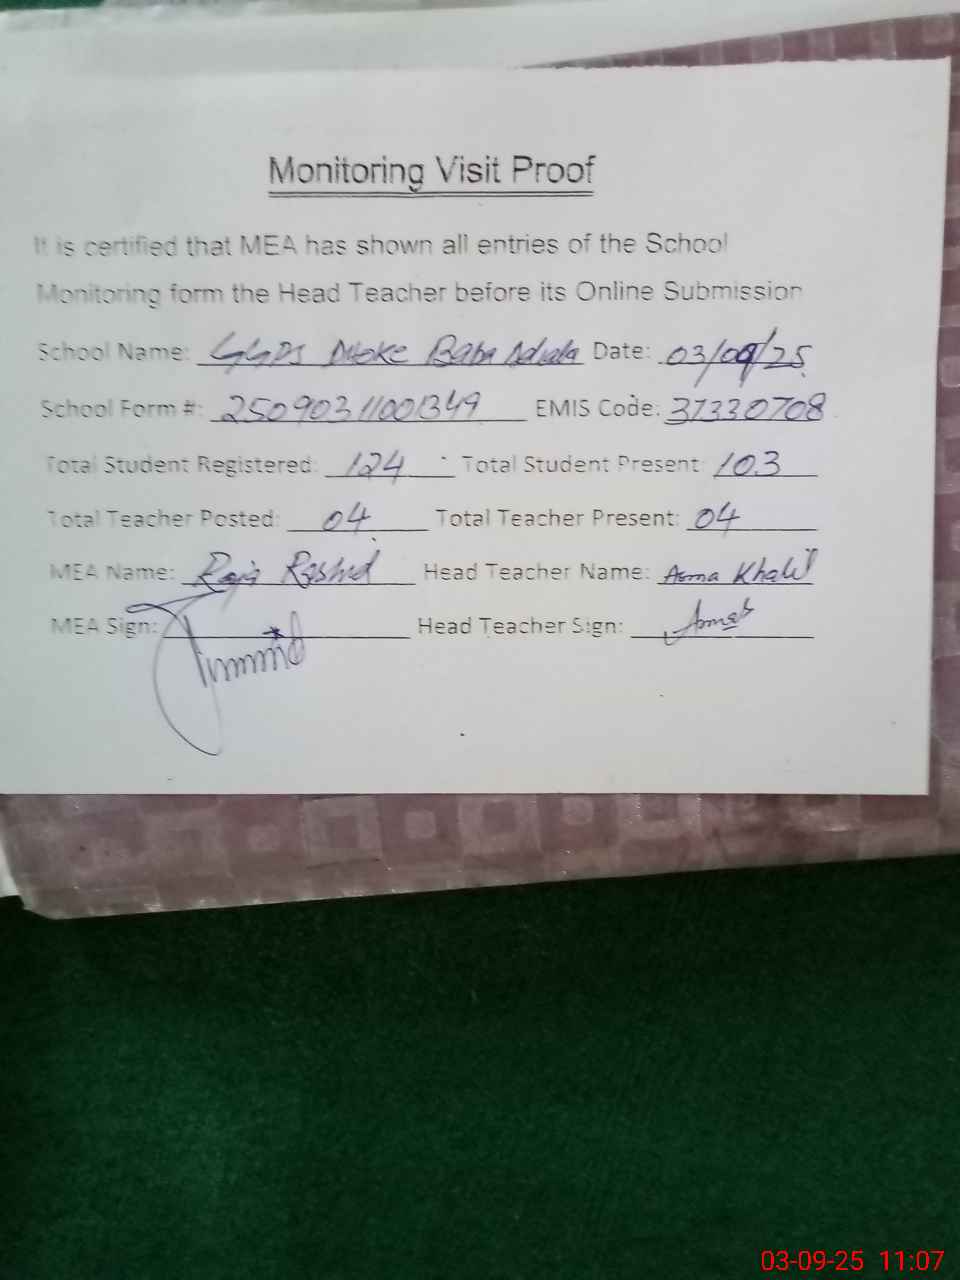 Monitoring Visit Proof
It is certified that MEA has shown all entries of the School
Monitoring form the Head Teacher before its Online Submission
School Name: GGPS Dhoke Baba Adiala Date: 03/09/25
School Form #: 25090311001349 EMIS Code: 37330708
Total Student Registered: 124 Total Student Present: 103
Total Teacher Posted: 04 Total Teacher Present: 04
MEA Name: Raja Rashid Head Teacher Name: Asma Khalil
MEA Sign: Head Teacher Sign:
03-09-25 11:07